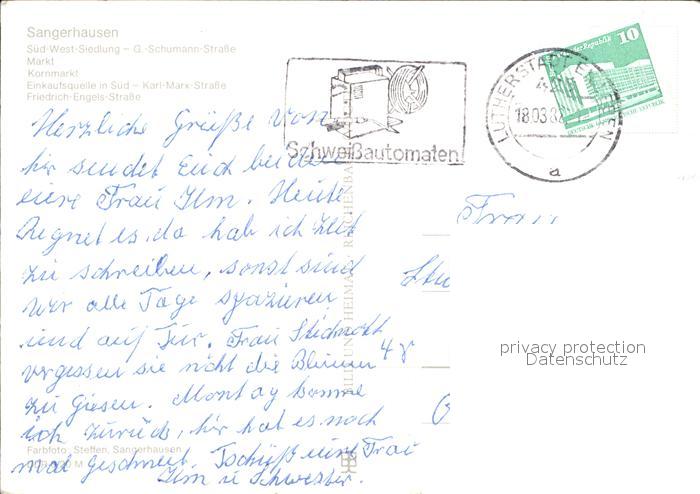 Sangerhausen
Süd-West-Siedlung – G.-Schumann-Straße
Markt
Kornmarkt
Einkaufsquelle in Süd – Karl-Marx-Straße
Friedrich-Engels-Straße
Schweißautomaten
LUTHERSTADT
18.03.8
a
10
DEUTSCHE DEMOKRATISCHE REPUBLIK
Herzliche Grüße von
hir sendet Euch
eure Frau Ilm. Heute
Regnet es, da hab ich Zeit
zu schreiben, sonst sind
wir alle Tage spazieren
und auf Tur. Frau
vergessen sie nicht die Blumen
zu giesen. Montag komme
ich zurück, hir hat es noch
mal geschneit. Tschüß eure Frau
Ilm u Schwester.
Fran
privacy protection
Datenschutz
Farbfoto: Steffen, Sangerhausen